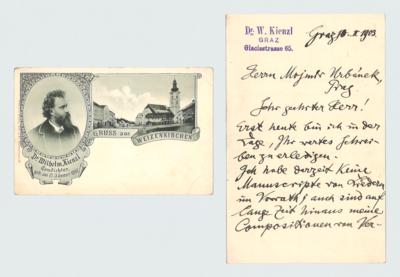 GRUSS aus
WEIZENKIRCHEN
Dr. Wilhelm Kienzl
Tondichter
geb. am 17. Januar 1857
Dr. W. Kienzl
GRAZ
Glacisstrasse 65.
Graz 10. X. 1903.
Herrn Mojmír Urbánek,
Prag
Sehr geehrter Herr!
Erst heute bin ich in der
Lage, Ihr wertes Schrei-
ben zu erledigen.
Ich habe derzeit keine
Manuscripte von Liedern
im Vorrath; auch sind auf
lange Zeit hinaus meine
Compositionen von Ver-